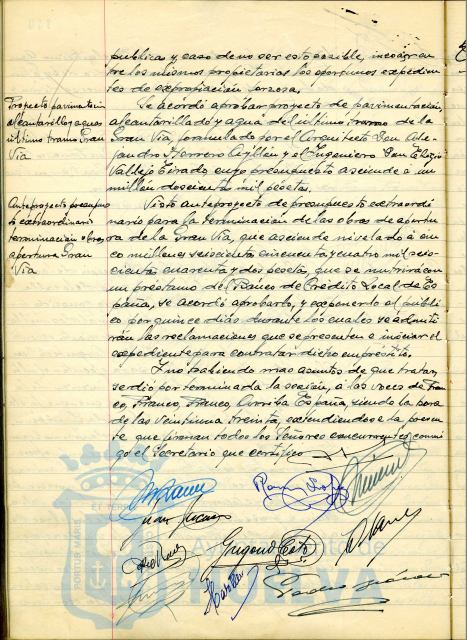 publicas y, caso de no ser esto posible, incoar en-
tre los mismos propietarios los oportunos expedien-
tes de expropiación forzosa.
Proyecto pavimentación
alcantarillado y aguas
último tramo Gran
Vía
Se acordó aprobar proyecto de pavimentación,
alcantarillado y agua del último tramo de la
Gran Vía, formulado por el Arquitecto Don Ale-
jandro Herrero Ayllón y el Ingeniero Don Eligio
Vallejo Tirado, cuyo presupuesto asciende a un
millón doscientas mil pesetas.
Anteproyecto presupues-
to extraordinario
terminación obras
apertura Gran
Vía
Visto anteproyecto de presupuesto extraordi-
nario para la terminación de las obras de apertu-
ra de la Gran Vía, que asciende nivelado á cin-
co millones seiscientas cincuenta y cuatro mil
cuarenta y dos pesetas, que se nutrirá con
un préstamo del Banco de Crédito Local de Es-
paña, se acordó aprobarlo, y exponerlo al públi-
co por quince días durante los cuales se admiti-
rán las reclamaciones que se presenten e incoar el
expediente para contratar dicho empréstito.
Y no habiendo mas asuntos de que tratar,
se dió por terminada la sesión, á las voces de Fran-
co, Franco, Franco, Arriba España, siendo la hora
de las veintiuna treinta, extendiendose la presen-
te que firman todos los Señores concurrentes, conmi-
go el Secretario que certifico
PORTUS MARIS
Ayuntamiento de
HUELVA